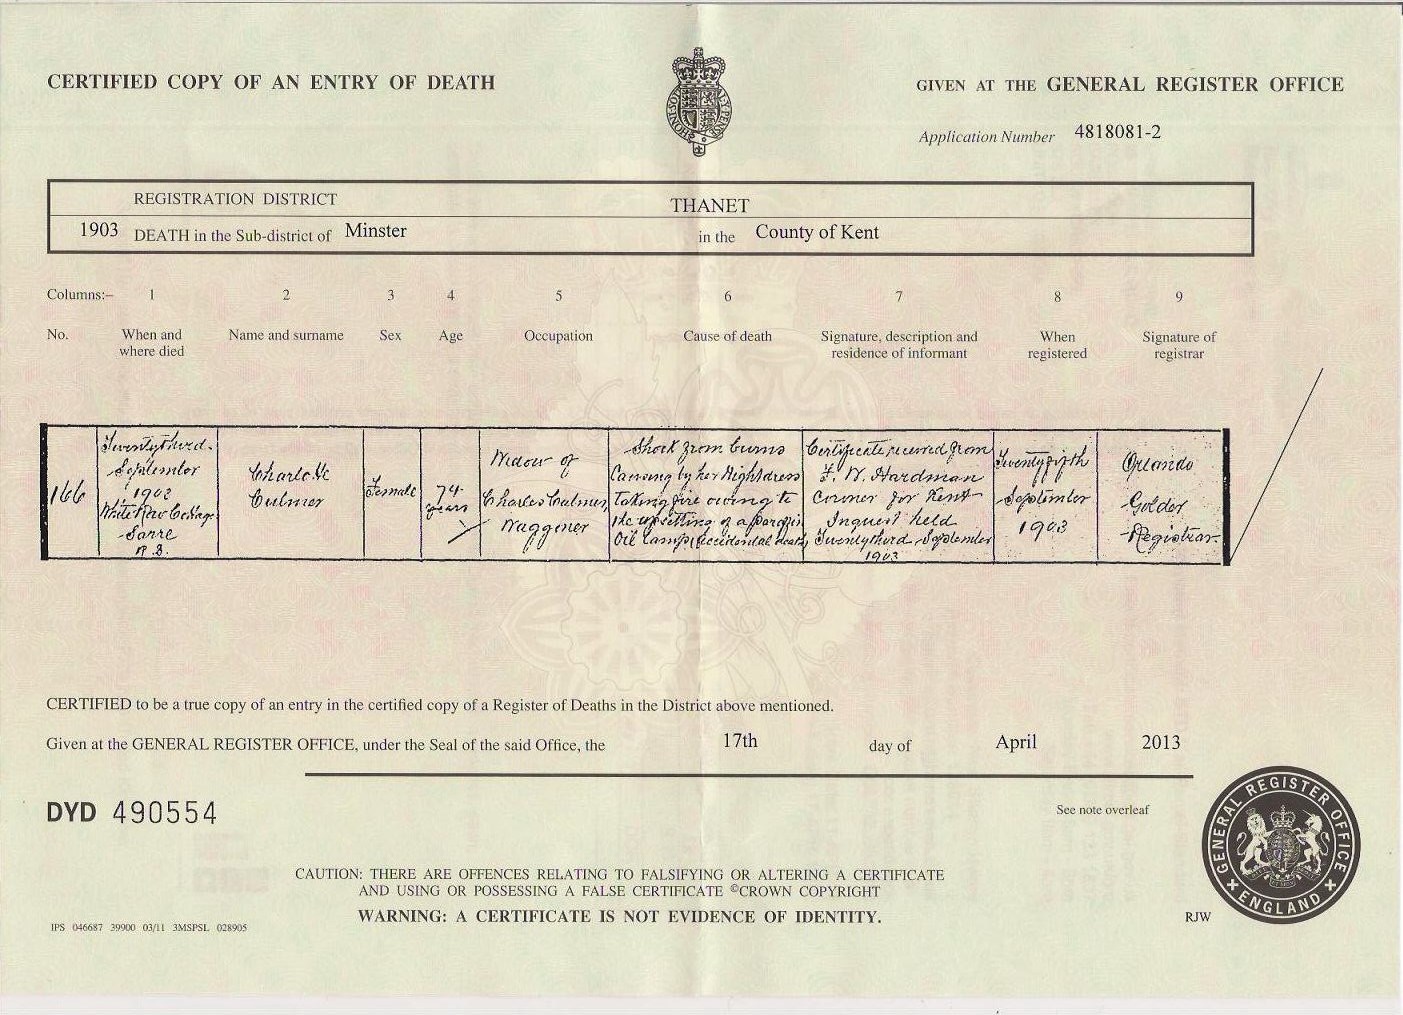 CERTIFIED COPY OF AN ENTRY OF DEATH
GIVEN AT THE GENERAL REGISTER OFFICE
Application Number 4818081-2
REGISTRATION DISTRICT THANET
1903 DEATH in the Sub-district of Minster in the County of Kent
Columns:– 1 2 3 4 5 6 7 8 9
No. When and where died Name and surname Sex Age Occupation Cause of death Signature, description and residence of informant When registered Signature of registrar
166
Twenty third
September
1903
White Row Cottage
Sarre
R.D.
Charlotte
Culmer
Female
74
years
Widow of
Charles Culmer
Waggoner
Shock from burns
Causing by her Nightdress
Taking fire owing to
the upsetting of a
Oil Lamp (accidental death)
Certificate received from
F. W. Hardman
Coroner for Kent
Inquest held
Twenty third September
1903
Twenty fifth
September
1903
Orlando
Golder
Registrar
CERTIFIED to be a true copy of an entry in the certified copy of a Register of Deaths in the District above mentioned.
Given at the GENERAL REGISTER OFFICE, under the Seal of the said Office, the 17th day of April 2013
DYD 490554
See note overleaf
CAUTION: THERE ARE OFFENCES RELATING TO FALSIFYING OR ALTERING A CERTIFICATE
AND USING OR POSSESSING A FALSE CERTIFICATE ©CROWN COPYRIGHT
WARNING: A CERTIFICATE IS NOT EVIDENCE OF IDENTITY.
IPS 046687 39900 03/11 3MSPSL 028905
RJW
GENERAL REGISTER OFFICE
ENGLAND